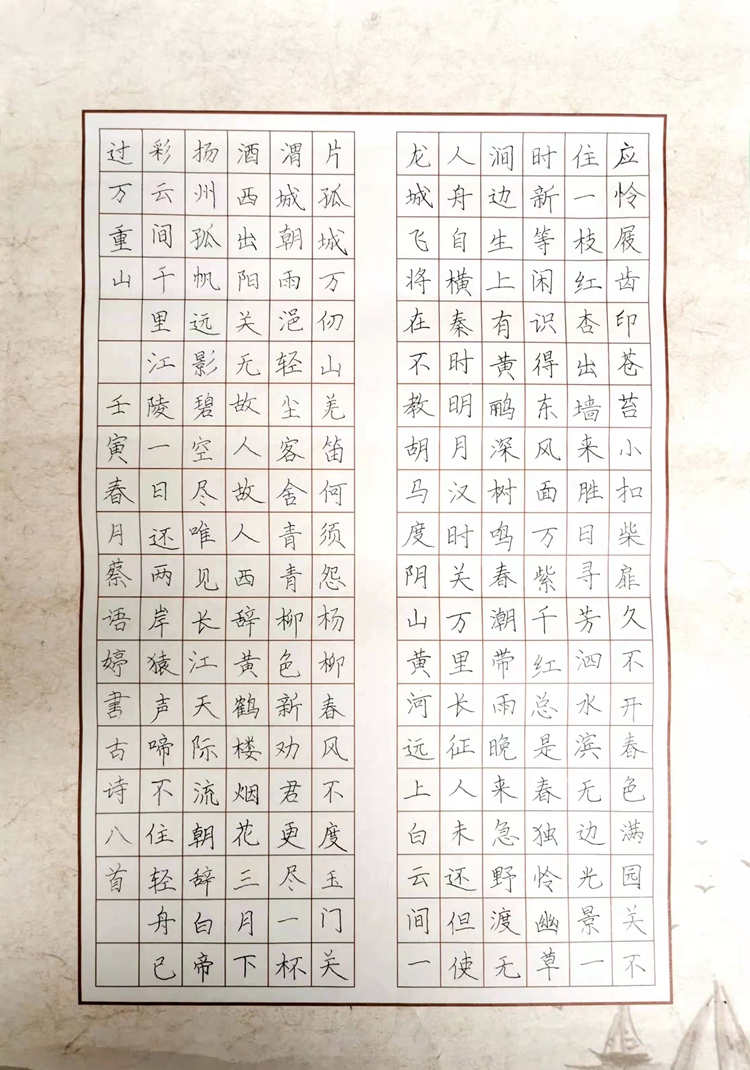 应怜屐齿印苍苔小扣柴扉久不开春色满园关不
住一枝红杏出墙来胜日寻芳泗水滨无边光景一
时新等闲识得东风面万紫千红总是春独怜幽草
涧边生上有黄鹂深树鸣春潮带雨晚来急野渡无
人舟自横秦时明月汉时关万里长征人未还但使
龙城飞将在不教胡马度阴山黄河远上白云间一
片孤城万仞山羌笛何须怨杨柳春风不度玉门关
渭城朝雨浥轻尘客舍青青柳色新劝君更尽一杯
酒西出阳关无故人故人西辞黄鹤楼烟花三月下
扬州孤帆远影碧空尽唯见长江天际流朝辞白帝
彩云间千里江陵一日还两岸猿声啼不住轻舟已
过万重山 壬寅春月蔡语婷书古诗八首